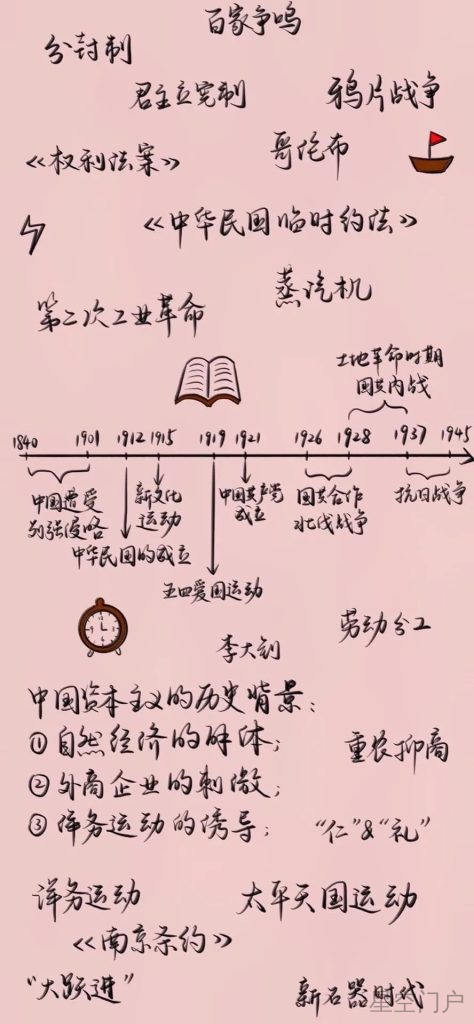 百家争鸣
分封制
君主立宪制 鸦片战争
《权利法案》 哥伦布
《中华民国临时约法》
蒸汽机
第二次工业革命
土地革命时期
国共内战
1840 1901 1912 1915 1919 1921 1926 1928 1937 1945
中国遭受
列强侵略
中华民国的成立
新文化
运动
五四爱国运动
中国共产党
成立
国共合作
北伐战争
抗日战争
劳动分工
李大钊
中国资本主义的历史背景:
①自然经济的解体;
重农抑商
②外商企业的刺激;
③洋务运动的诱导; “仁”&“礼”
洋务运动 太平天国运动
《南京条约》
“大跃进” 新石器时代
星空门户